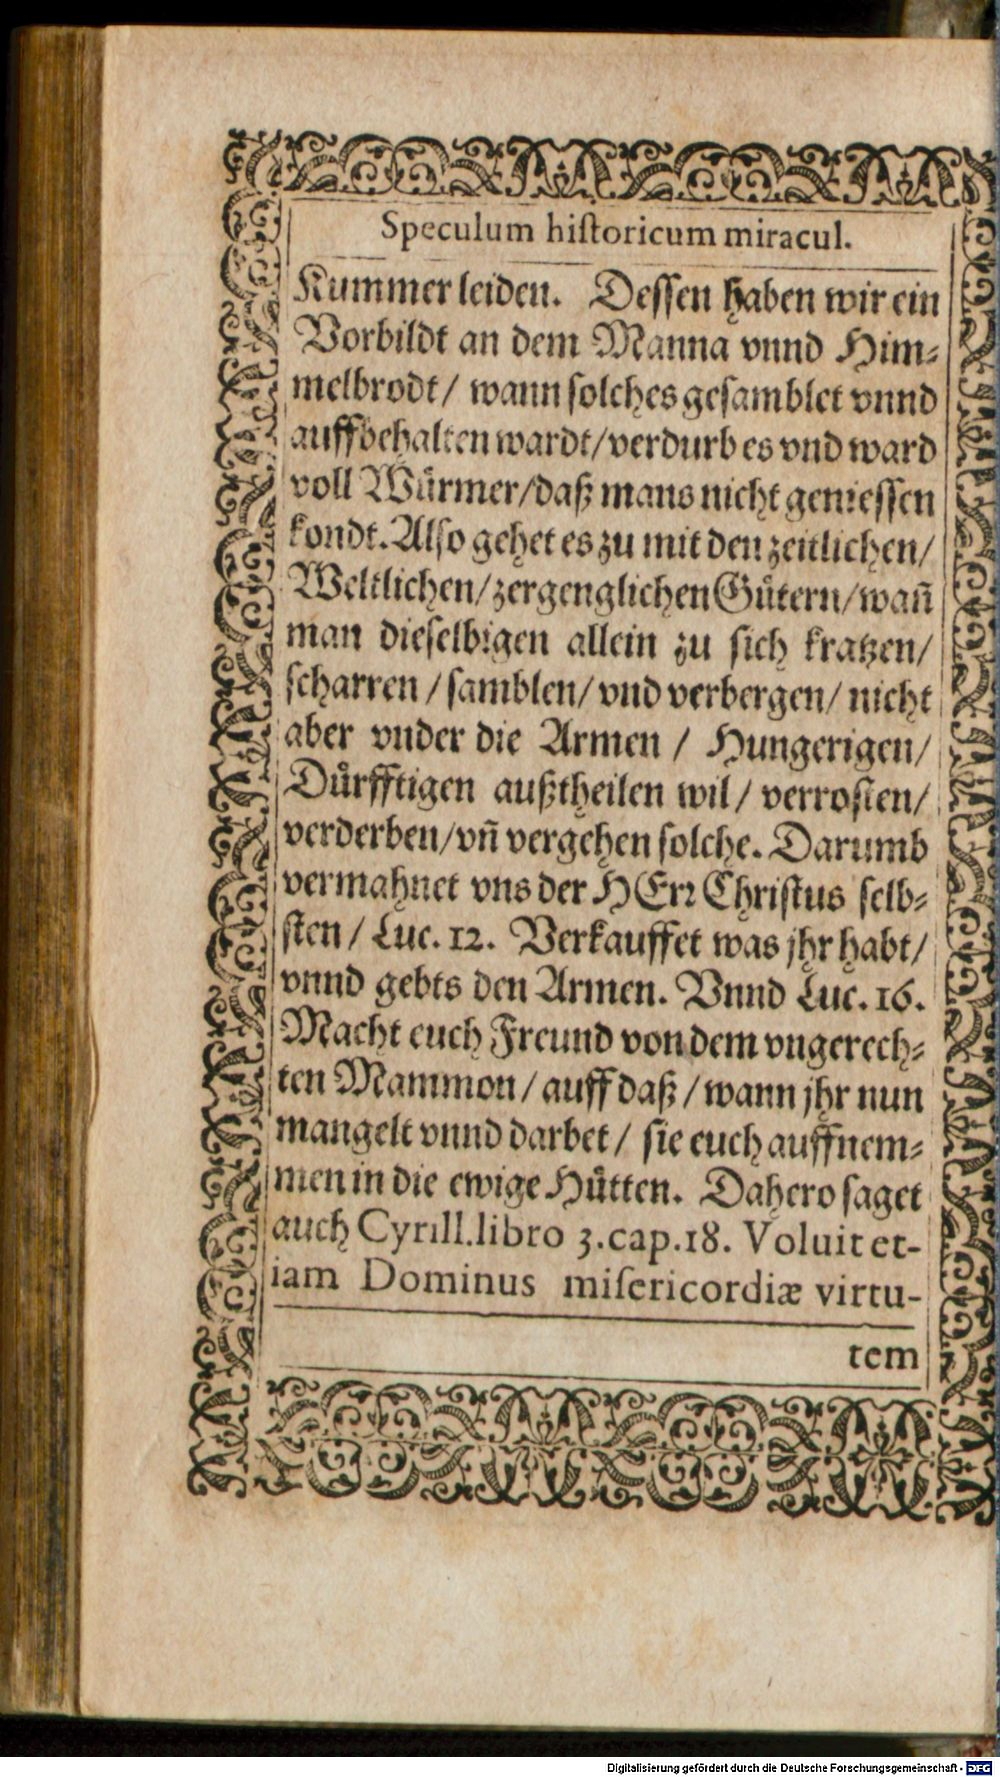 Speculum hiſtoricum miracul.
Kummer leiden. Deſſen haben wir ein
Vorbildt an dem Manna vnnd Him⸗
melbrodt/ wann ſolches geſamblet vnnd
auffbehalten wardt/verdurb es vnd ward
voll Wuͤrmer/daß mans nicht genieſſen
kondt. Alſo gehet es zu mit den zeitlichen/
Weltlichen/zergenglichen Guͤtern/wañ
man dieſelbigen allein zu ſich kratzen/
ſcharren / ſamblen/ vnd verbergen/ nicht
aber vnder die Armen / Hungerigen/
Duͤrfftigen außtheilen wil/ verroſten/
verderben/vñ vergehen ſolche. Darumb
vermahnet vns der HErꝛ Chriſtus ſelb⸗
ſten / Luc. 12. Verkauffet was jhr habt/
vnnd gebts den Armen. Vnnd Luc. 16.
Macht euch Freund von dem vngerech⸗
ten Mammon/ auff daß / wann jhr nun
mangelt vnnd darbet / ſie euch auffnem⸗
men in die ewige Huͤtten. Dahero ſaget
auch Cyrill.libro 3.cap.18. Voluit et-
iam Dominus miſericordiæ virtu-
tem
Digitalisierung gefördert durch die Deutsche Forschungsgemeinschaft - DFG